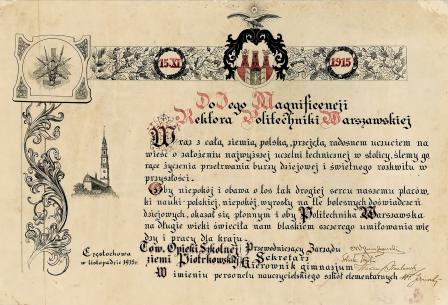 15.XI
1915
Do Jego Magnificencji
Rektora Politechniki Warszawskiej
Wraz z całą, ziemią, polską, przejęta, radosnem uczuciem na
wieść o założeniu najwyższej uczelni technicznej w stolicy, ślemy go
rące życzenia przetrwania burzy dziejowej i świetnego rozkwitu w
przyszłości.
Oby niepokój i obawa o los tak drogiej sercu naszemu placów
ki nauki polskiej, niepokój wyrosły na tle bolesnych doświadczeń
dziejowych, okazał się płonnym i oby Politechnika Warszawska
na długie wieki świeciła nam blaskiem szczerego umiłowania wie
dzy i pracy dla kraju.
Tow. Opieki Szkolnej
ziemi Piotrkowskiej
Przewodniczący Zarządu
Sekretarz
Kierownik gimnazjum
W imieniu personelu nauczycielskiego szkół elementarnych
Częstochowa
w listopadzie 1915 r.